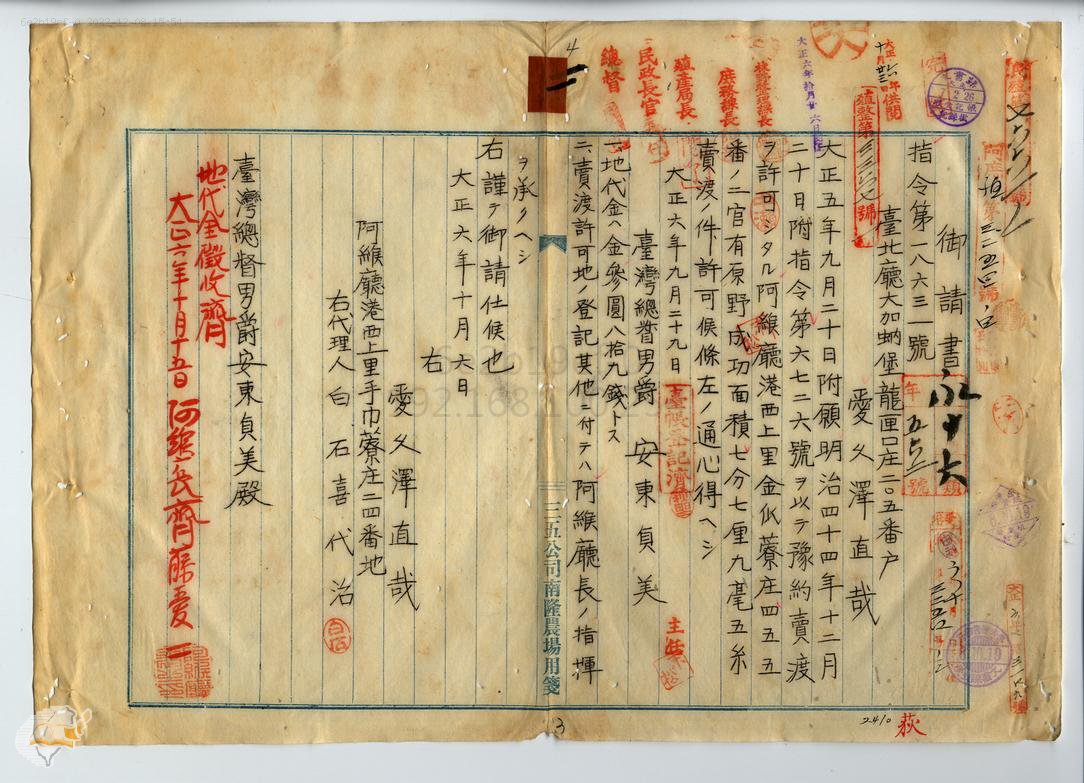 御請書
指令第一八六三一號
臺北廳大加蚋堡龍匣口庄二〇五番戶
愛久澤直哉
大正五年九月二十日附願明治四十四年十二月
二十日附指令第六七二六號ヲ以テ豫約賣渡
ヲ許可シタル阿緱廳港西上里金瓜藔庄四五五
番ノ二官有原野成功面積七分七厘九毫五糸
賣渡ノ件許可候條左ノ通心得ヘシ
大正六年九月二十九日
臺灣總督男爵 安東貞美
一、地代金ハ金參圓八拾九錢トス
二、賣渡許可地ノ登記其他ニ付テハ阿緱廳長ノ指揮
ヲ承クヘシ
右謹テ御請仕候也
大正六年十月六日
右
愛久澤直哉
阿緱廳港西上里手巾藔庄二四番地
右代理人 白石喜代治
臺灣總督男爵安東貞美殿
地代金徵收濟
大正六年十月十五日 阿緱廳長齋藤愛二
三五公司南隆農場用箋
總督
民政長官
殖產局長
庶務課長
大正六年拾月廿六日
臺帳登記濟
主任
永十六年
類
號
白石
4
3
2410
荻